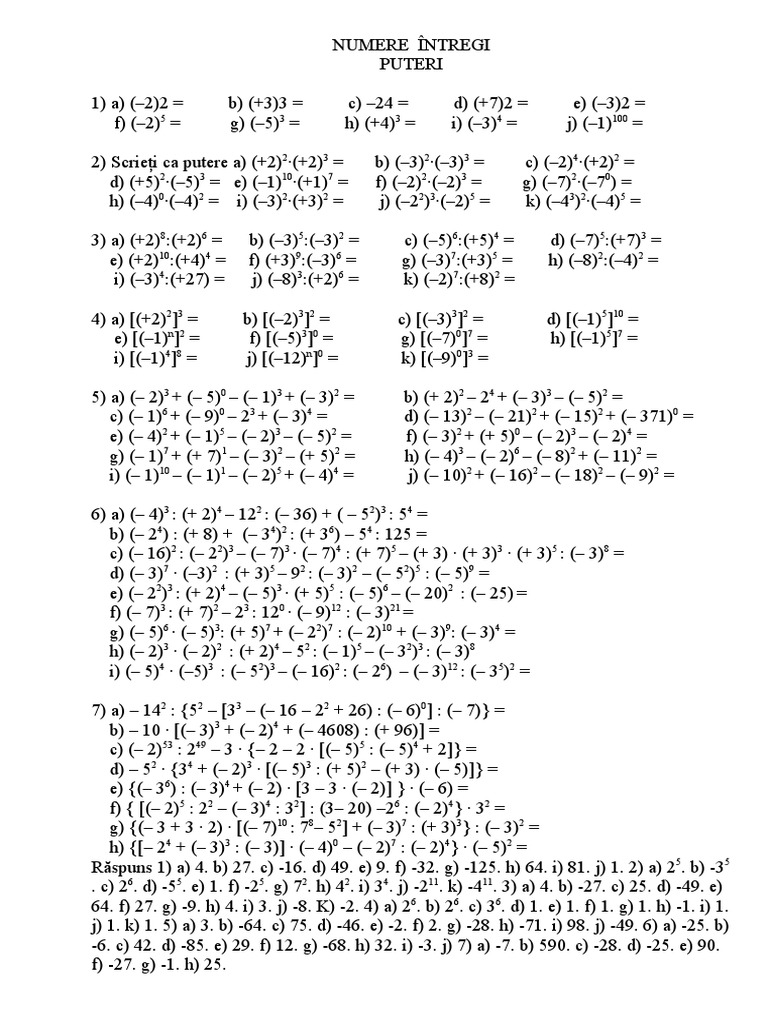 NUMERE ÎNTREGI
PUTERI
1) a) (–2)2 = b) (+3)3 = c) –24 = d) (+7)2 = e) (–3)2 =
f) (–2)⁵ = g) (–5)³ = h) (+4)³ = i) (–3)⁴ = j) (–1)¹⁰⁰ =
2) Scrieți ca putere a) (+2)²·(+2)³ = b) (–3)²·(–3)³ = c) (–2)⁴·(+2)² =
d) (+5)²·(–5)³ = e) (–1)¹⁰·(+1)⁷ = f) (–2)²·(–2)³ = g) (–7)²·(–7⁰) =
h) (–4)⁰·(–4)² = i) (–3)²·(+3)² = j) (–2²)³·(–2)⁵ = k) (–4³)²·(–4)⁵ =
3) a) (+2)⁸:(+2)⁶ = b) (–3)⁵:(–3)² = c) (–5)⁶:(+5)⁴ = d) (–7)⁵:(+7)³ =
e) (+2)¹⁰:(+4)⁴ = f) (+3)⁹:(–3)⁶ = g) (–3)⁷:(+3)⁵ = h) (–8)²:(–4)² =
i) (–3)⁴:(+27) = j) (–8)³:(+2)⁶ = k) (–2)⁷:(+8)² =
4) a) [(+2)²]³ = b) [(–2)³]² = c) [(–3)³]² = d) [(–1)⁵]¹⁰ =
e) [(–1)ⁿ]² = f) [(–5)³]⁰ = g) [(–7)⁰]⁷ = h) [(–1)⁵]⁷ =
i) [(–1)⁴]⁸ = j) [(–12)ⁿ]⁰ = k) [(–9)⁰]³ =
5) a) (– 2)³ + (– 5)⁰ – (– 1)³ + (– 3)² = b) (+ 2)² – 2⁴ + (– 3)³ – (– 5)² =
c) (– 1)⁶ + (– 9)⁰ – 2³ + (– 3)⁴ = d) (– 13)² – (– 21)² + (– 15)² + (– 371)⁰ =
e) (– 4)² + (– 1)⁵ – (– 2)³ – (– 5)² = f) (– 3)² + (+ 5)⁰ – (– 2)³ – (– 2)⁴ =
g) (– 1)⁷ + (+ 7)¹ – (– 3)² – (+ 5)² = h) (– 4)³ – (– 2)⁶ – (– 8)² + (– 11)² =
i) (– 1)¹⁰ – (– 1)¹ – (– 2)⁵ + (– 4)⁴ = j) (– 10)² + (– 16)² – (– 18)² – (– 9)² =
6) a) (– 4)³ : (+ 2)⁴ – 12² : (– 36) + ( – 5²)³ : 5⁴ =
b) (– 2⁴) : (+ 8) + (– 3⁴)² : (+ 3⁶) – 5⁴ : 125 =
c) (– 16)² : (– 2²)³ – (– 7)³ · (– 7)⁴ : (+ 7)⁵ – (+ 3) · (+ 3)³ · (+ 3)⁵ : (– 3)⁸ =
d) (– 3)⁷ · (–3)² : (+ 3)⁵ – 9² : (– 3)² – (– 5²)⁵ : (– 5)⁹ =
e) (– 2²)³ : (+ 2)⁴ – (– 5)³ · (+ 5)⁵ : (– 5)⁶ – (– 20)² : (– 25) =
f) (– 7)³ : (+ 7)² – 2³ : 12⁰ · (– 9)¹² : (– 3)²¹ =
g) (– 5)⁶ · (– 5)³: (+ 5)⁷ + (– 2²)⁷ : (– 2)¹⁰ + (– 3)⁹: (– 3)⁴ =
h) (– 2)³ · (– 2)² : (+ 2)⁴ – 5² : (– 1)⁵ – (– 3²)³ : (– 3)⁸
i) (– 5)⁴ · (–5)³ : (– 5²)³ – (– 16)² : (– 2⁶) – (– 3)¹² : (– 3⁵)² =
7) a) – 14² : {5² – [3³ – (– 16 – 2² + 26) : (– 6)⁰] : (– 7)} =
b) – 10 · [(– 3)³ + (– 2)⁴ + (– 4608) : (+ 96)] =
c) (– 2)⁵³ : 2⁴⁹ – 3 · {– 2 – 2 · [(– 5)⁵ : (– 5)⁴ + 2]} =
d) – 5² · {3⁴ + (– 2)³ · [(– 5)³ : (+ 5)² – (+ 3) · (– 5)]} =
e) {(– 3⁶) : (– 3)⁴ + (– 2) · [3 – 3 · (– 2)] } · (– 6) =
f) { [(– 2)⁵ : 2² – (– 3)⁴ : 3²] : (3– 20) –2⁶ : (– 2)⁴} · 3² =
g) {(– 3 + 3 · 2) · [(– 7)¹⁰ : 7⁸– 5²] + (– 3)⁷ : (+ 3)³} : (– 3)² =
h) {[– 2⁴ + (– 3)³ : (– 3)] · (– 4)⁰ – (– 2)⁷ : (– 2)⁴} · (– 5)² =
Răspuns 1) a) 4. b) 27. c) -16. d) 49. e) 9. f) -32. g) -125. h) 64. i) 81. j) 1. 2) a) 2⁵. b) -3⁵
. c) 2⁶. d) -5⁵. e) 1. f) -2⁵. g) 7². h) 4². i) 3⁴. j) -2¹¹. k) -4¹¹. 3) a) 4. b) -27. c) 25. d) -49. e)
64. f) 27. g) -9. h) 4. i) 3. j) -8. K) -2. 4) a) 2⁶. b) 2⁶. c) 3⁶. d) 1. e) 1. f) 1. g) 1. h) -1. i) 1.
j) 1. k) 1. 5) a) 3. b) -64. c) 75. d) -46. e) -2. f) 2. g) -28. h) -71. i) 98. j) -49. 6) a) -25. b)
-6. c) 42. d) -85. e) 29. f) 12. g) -68. h) 32. i) -3. j) 7) a) -7. b) 590. c) -28. d) -25. e) 90.
f) -27. g) -1. h) 25.